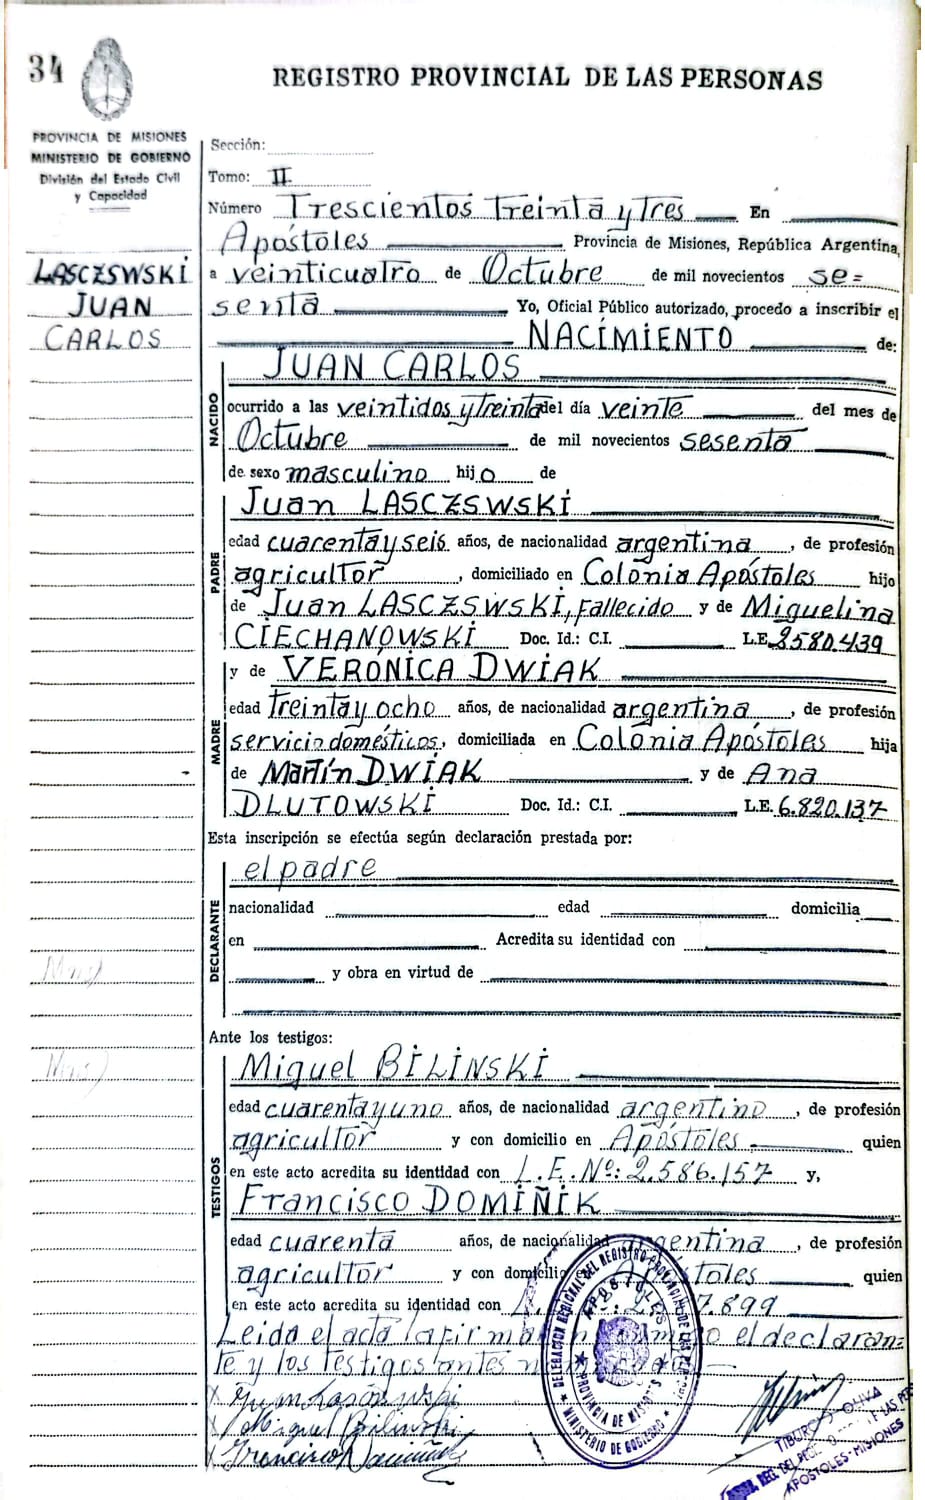 34
REGISTRO PROVINCIAL DE LAS PERSONAS
PROVINCIA DE MISIONES
MINISTERIO DE GOBIERNO
División del Estado Civil
y Capacidad
LASCZSWSKI
JUAN
CARLOS
Sección:
Tomo: II
Número Trescientos treinta y tres En
Apóstoles Provincia de Misiones, República Argentina,
a veinticuatro de Octubre de mil novecientos se=
senta Yo, Oficial Público autorizado, procedo a inscribir el
NACIMIENTO de:
NACIDO
JUAN CARLOS
ocurrido a las veintidos y treinta del día veinte del mes de
Octubre de mil novecientos sesenta
de sexo masculino hijo de
PADRE
Juan LASCZSWSKI
edad cuarenta y seis años, de nacionalidad argentina, de profesión
agricultor, domiciliado en Colonia Apóstoles hijo
de Juan LASCZSWSKI, fallecido y de Miguelina
CIECHANOWSKI Doc. Id.: C.I. L.E. 2580.439
MADRE
y de VERÓNICA DWIAK
edad treinta y ocho años, de nacionalidad argentina, de profesión
servicio domésticos, domiciliada en Colonia Apóstoles hija
de Martín DWIAK y de Ana
DLUTOWSKI Doc. Id.: C.I. L.E. 6.820.137
Esta inscripción se efectúa según declaración prestada por:
DECLARANTE
el padre
nacionalidad edad domicilia
en Acredita su identidad con
y obra en virtud de
Ante los testigos:
TESTIGOS
Miguel BILINSKI
edad cuarenta y uno años, de nacionalidad argentino, de profesión
agricultor y con domicilio en Apóstoles quien
en este acto acredita su identidad con L.E.Nº: 2.586.157 y,
Francisco DOMIÑIK
edad cuarenta años, de nacionalidad argentina, de profesión
agricultor y con domicilio en Apóstoles quien
en este acto acredita su identidad con 7.899
Leida el acta la firman el declaran=
te y los testigos antes
Miguel Bilinski
Francisco
DELEGACION REGIONAL DEL REGISTRO PROVINCIAL DE LAS PERSONAS
APOSTOLES
PROVINCIA DE MISIONES
MINISTERIO DE GOBIERNO
TIBURCIO OLIVA
APOSTOLES - MISIONES